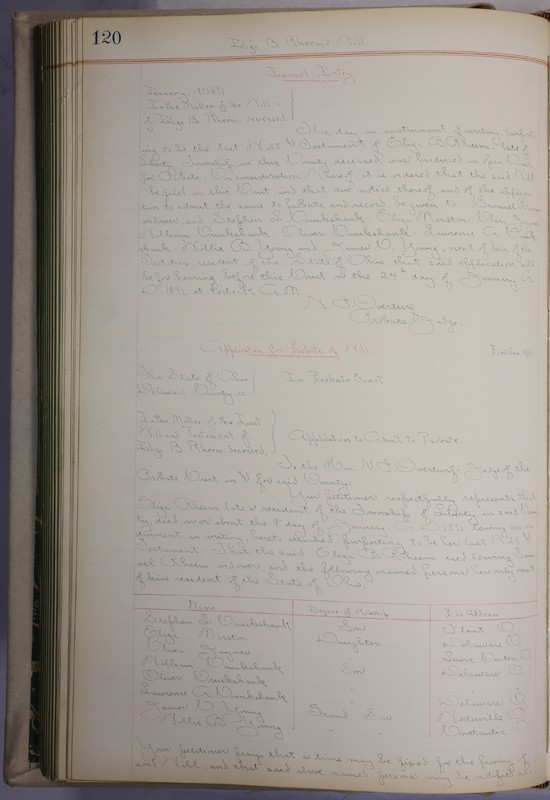 120
Eliza B. Rheem Will
Journal Entry
January 19 1891
In the Matter of the Will
of Eliza B. Rheem deceased
This day an instrument of writing, purport
ing to be the last Will & Testament of Eliza B. Rheem late of
Liberty Township in this County deceased, was produced in Open Court
for Probate, On consideration thereof, it is ordered that the said Will
be filed in this Court and that due notice thereof, and of the applica
tion to admit the same to probate and record, be given to Samuel Rheem
widower, and Stephen S. Cruikshank, Eliza Marston,
William Cruikshank, Oliver Cruikshank, Laurence A. Cruik
shank, Willie B. Young and James V. Young, next of kin of the
Testatrix, resident of the State of Ohio that said application will
be for hearing before this Court on the 24th day of January A
D. 1891 at o'clock A.M.
N. F. Overturf
Probate Judge.
Application for Probate of Will
The State of Ohio
Delaware County ss
In Probate Court
In the Matter of the Last
Will and Testament of
Eliza B. Rheem, deceased,
Application to Admit to Probate.
To the Hon. N. F. Overturf, Judge of the
Probate Court in & for said County.
Your petitioner respectfully represents that
Eliza Rheem late a resident of the Township of Liberty in said Coun
ty, died on or about the 9" day of January A.D. 1891 leaving an in
strument in writing, hereto attached purporting to be her last Will &
Testament. That the said Eliza B. Rheem died leaving Sam
uel Rheem widower and the following named persons her only next
of kin resident of the State of Ohio.
Name
Degree of Kinship
P.O. Address
Stephen S. Cruikshank
Son
Flint O
Eliza Marston
Daughter
Delaware O
Oliver
William Cruikshank
Son
Delaware O
Oliver Cruikshank
Laurence A Cruikshank
Delaware O
James V. Young
Grand Son
O
Willie B. Young
O
Your petitioner prays that a time may be fixed for the proving of
said Will, and that said above named persons may be notified